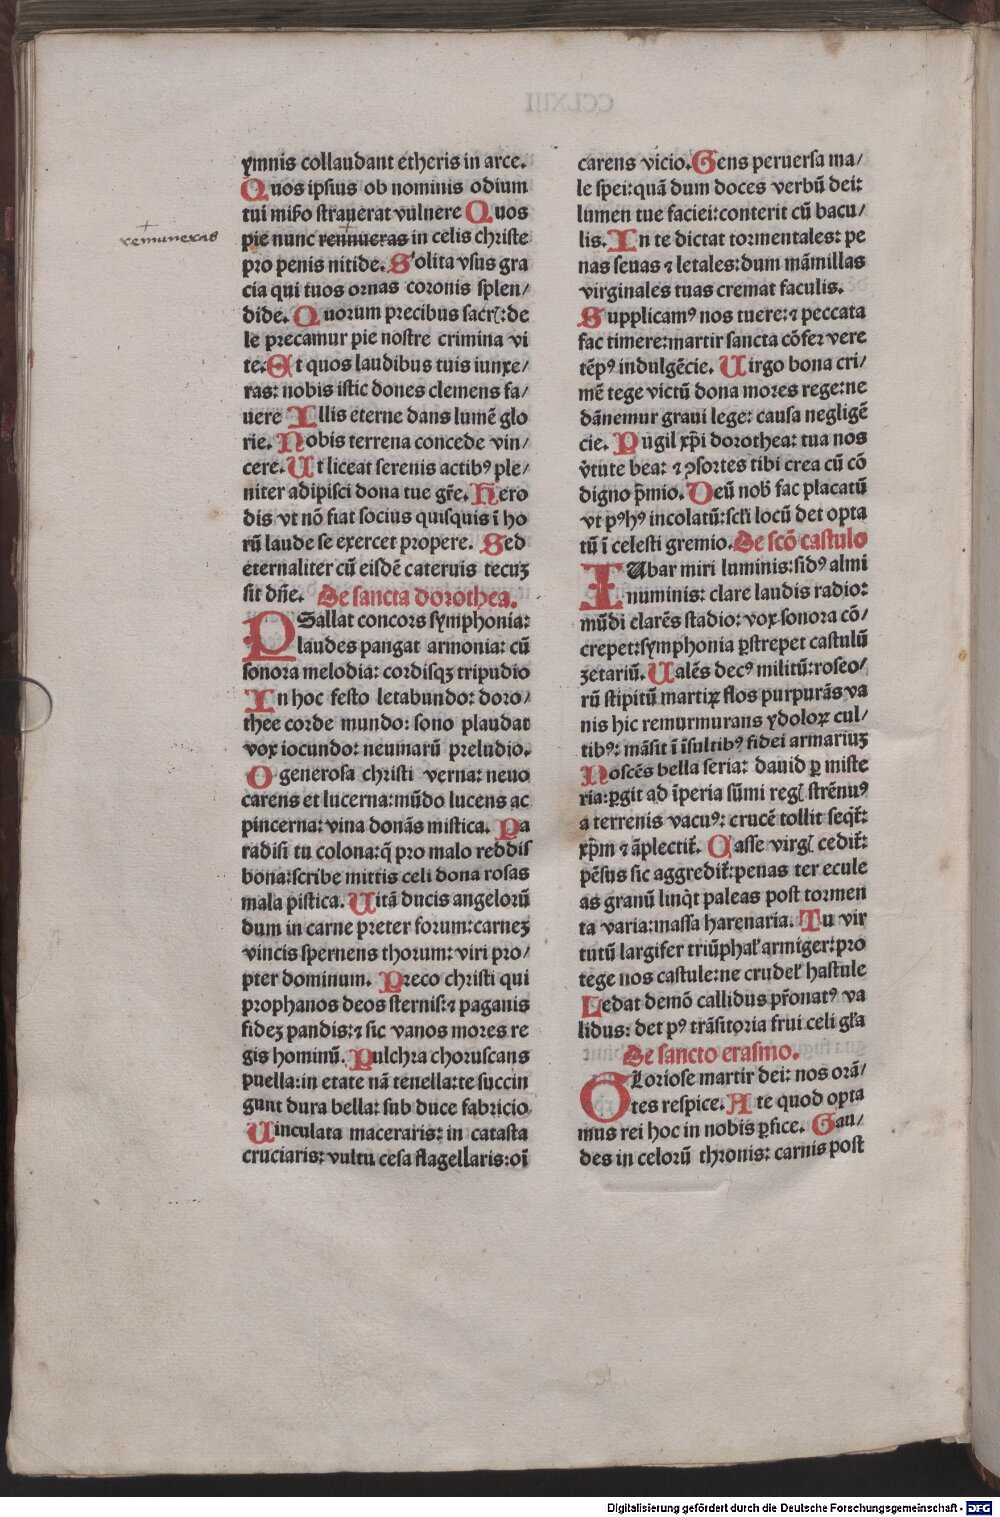 remuneras
ymnis collaudant etheris in arce.
Quos ipsius ob nominis odium
tui miſo ſtrauerat vulnere Quos
pie nunc rennueras in celis chriſte
pro penis nitide. Solita vſus gra
cia qui tuos ornas coronis ſplen/
dide. Quorum precibus ſacrꝭ: de
le precamur pie noſtre crimina vi
te. Et quos laudibus tuis iunxe/
ras: nobis iſtic dones clemens fa/
uere Illis eterne dans lumē glo
rie. Nobis terrena concede vin/
cere. Ut liceat ſerenis actibꝰ ple/
niter adipiſci dona tue gr̄e. Hero
dis vt nō fiat ſocius quiſquis ī ho
rū laude ſe exercet propere. Sed
eternaliter cū eiſdē cateruis tecuꝫ
ſit dn̄e. De ſancta dorothea.
PSallat concors ſymphonia:
laudes pangat armonia: cū
ſonora melodia: cordiſqꝫ tripudio
In hoc feſto letabundo: doro/
thee corde mundo: ſono plaudat
vox iocundo: neumarū preludio.
O generoſa chriſti verna: neuo
carens et lucerna: mūdo lucens ac
pincerna: vina donās miſtica. Pa
radiſi tu colona: q̄ pro malo reddiſ
bona: ſcribe mittis celi dona roſas
mala piſtica. Uitā ducis angelorū
dum in carne preter forum: carneꝫ
vincis ſpernens thorum: viri pro/
pter dominum. Preco chriſti qui
prophanos deos ſterniſ: ⁊ paganis
fideꝫ pandis: ⁊ ſic vanos mores re
gis hominū. Pulchra choruſcans
puella: in etate nā tenella: te ſuccin
gunt dura bella: ſub duce fabricio
Uinculata maceraris: in cataſta
cruciaris: vultu ceſa flagellaris: oī
carens vicio. Gens peruerſa ma/
le ſpei: quā dum doces verbū dei:
lumen tue faciei: conterit cū bacu/
lis. In te dictat tormentales: pe
nas ſeuas ⁊ letales: dum māmillas
virginales tuas cremat faculis.
Supplicamꝰ nos tuere: ⁊ peccata
fac timere: martir ſancta cōfer vere
tēpꝰ indulgēcie. Uirgo bona cri/
mē tege victū dona mores rege: ne
dānemur graui lege: cauſa negligē
cie. Pugil xp̄i dorothea: tua nos
v̄tute bea: ⁊ ꝯſortes tibi crea cū cō
digno p̄mio. Deū nob̄ fac placatū
vt pꝰ hꝰ incolatū: ſcl̄i locū det opta
tū ī celeſti gremio. De ſcō caſtulo
IUbar miri luminis: ſidꝰ almi
numinis: clare laudis radio:
mūdi clarēs ſtadio: vox ſonora cō/
crepet: ſymphonia ꝑſtrepet caſtulū
ꝫetariū. Ualēs decꝰ militū: roſeo/
rū ſtipitū martiꝝ flos purpurās va
nis hic remurmurans ydoloꝝ cul/
tibꝰ: māſit ī īſultibꝰ fidei armariuꝫ
Noſcēs bella ſeria: dauid ꝑ miſte
ria: ꝑgit ad īperia ſūmi regꝭ ſtrēnuꝰ
a terrenis vacuꝰ: crucē tollit ſeqt̄:
xp̄m ⁊ āplectit̄. Caſſe virgꝭ cedit̄:
pēſus ſic aggredit̄: penas ter ecule
as granū linq̇t paleas poſt tormen
ta varia: maſſa harenaria. Tu vir
tutū largifer triūphal̄ armiger: pro
tege nos caſtule: ne crudel̄ haſtule
Ledat demō callidus pr̄onatꝰ va
lidus: det pꝰ trāſitoria frui celi gl̄a
De ſancto eraſmo.
GLorioſe martir dei: nos orā/
tes reſpice. A te quod opta
mus rei hoc in nobis ꝑfice. Gau/
des in celorū thronis: carnis poſt
Digitalisierung gefördert durch die Deutsche Forschungsgemeinschaft - DFG